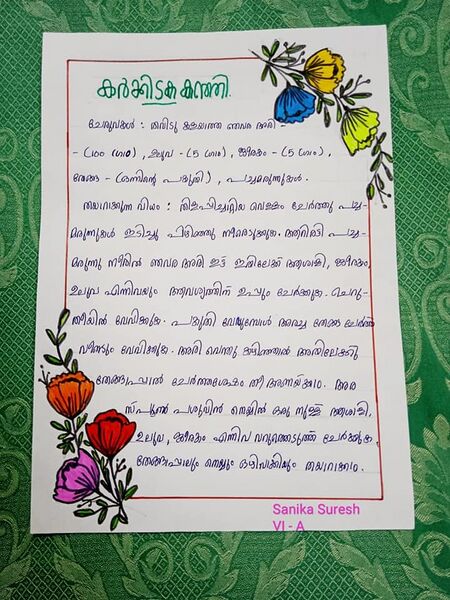 കർക്കിടക കഞ്ഞി.
ചേരുവകൾ : തവിടു കളയാത്ത ഞവര അരി -
- (100 ഗ്രാം), ഉലുവ - (5 ഗ്രാം), ജീരകം - (5 ഗ്രാം),
തേങ്ങ - (ഒന്നിന്റെ പകുതി), പച്ചമരുന്നുകൾ.
തയാറാക്കുന്ന വിധം : തിളപ്പിച്ചാറ്റിയ വെള്ളം ചേർത്തു പച്ച-
മരുന്നുകൾ ഇടിച്ചു പിഴിഞ്ഞു നീരെടുക്കുക. ആറിരട്ടി പച്ച-
മരുന്നു നീരിൽ ഞവര അരി ഇട്ട് ഇതിലേക്ക് ആശാളി, ജീരകം,
ഉലുവ എന്നിവയും ആവശ്യത്തിന് ഉപ്പും ചേർക്കുക. ചെറു-
തീയിൽ വേവിക്കുക. പകുതി വേവുമ്പോൾ അരച്ച തേങ്ങ ചേർത്ത്
വീണ്ടും വേവിക്കുക. അരി വെന്തു കഴിഞ്ഞാൽ അതിലേക്കു
തേങ്ങാപ്പാൽ ചേർത്തശേഷം തീ അണയ്ക്കാം. അര
സ്പൂൺ പശുവിൻ നെയ്യിൽ ഒരു നുള്ള് ആശാളി,
ഉലുവ, ജീരകം എന്നിവ വറുത്തെടുത്ത് ചേർക്കുക.
തേങ്ങാപ്പാലും നെയ്യും ഒഴിവാക്കിയും തയാറാക്കാം.
Sanika Suresh
VI - A